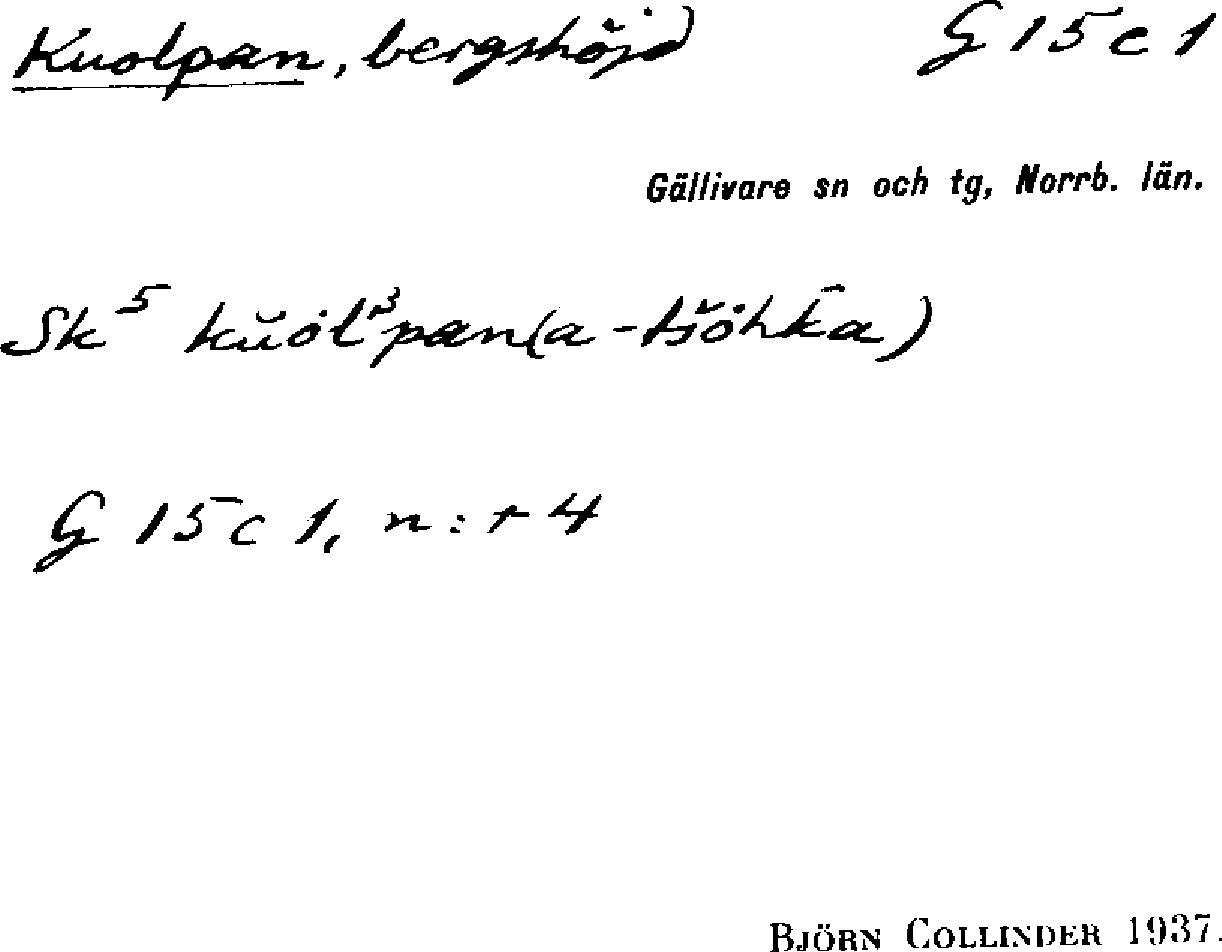 Kuolpan, bergshöjd G 15 c 1
Gällivare sn och tg, Norrb. län.
Sk⁵ kŭȯl³pan(a-tšȯhk̄a)
G 15 c 1, n:r 4
BJÖRN COLLINDER 1937.